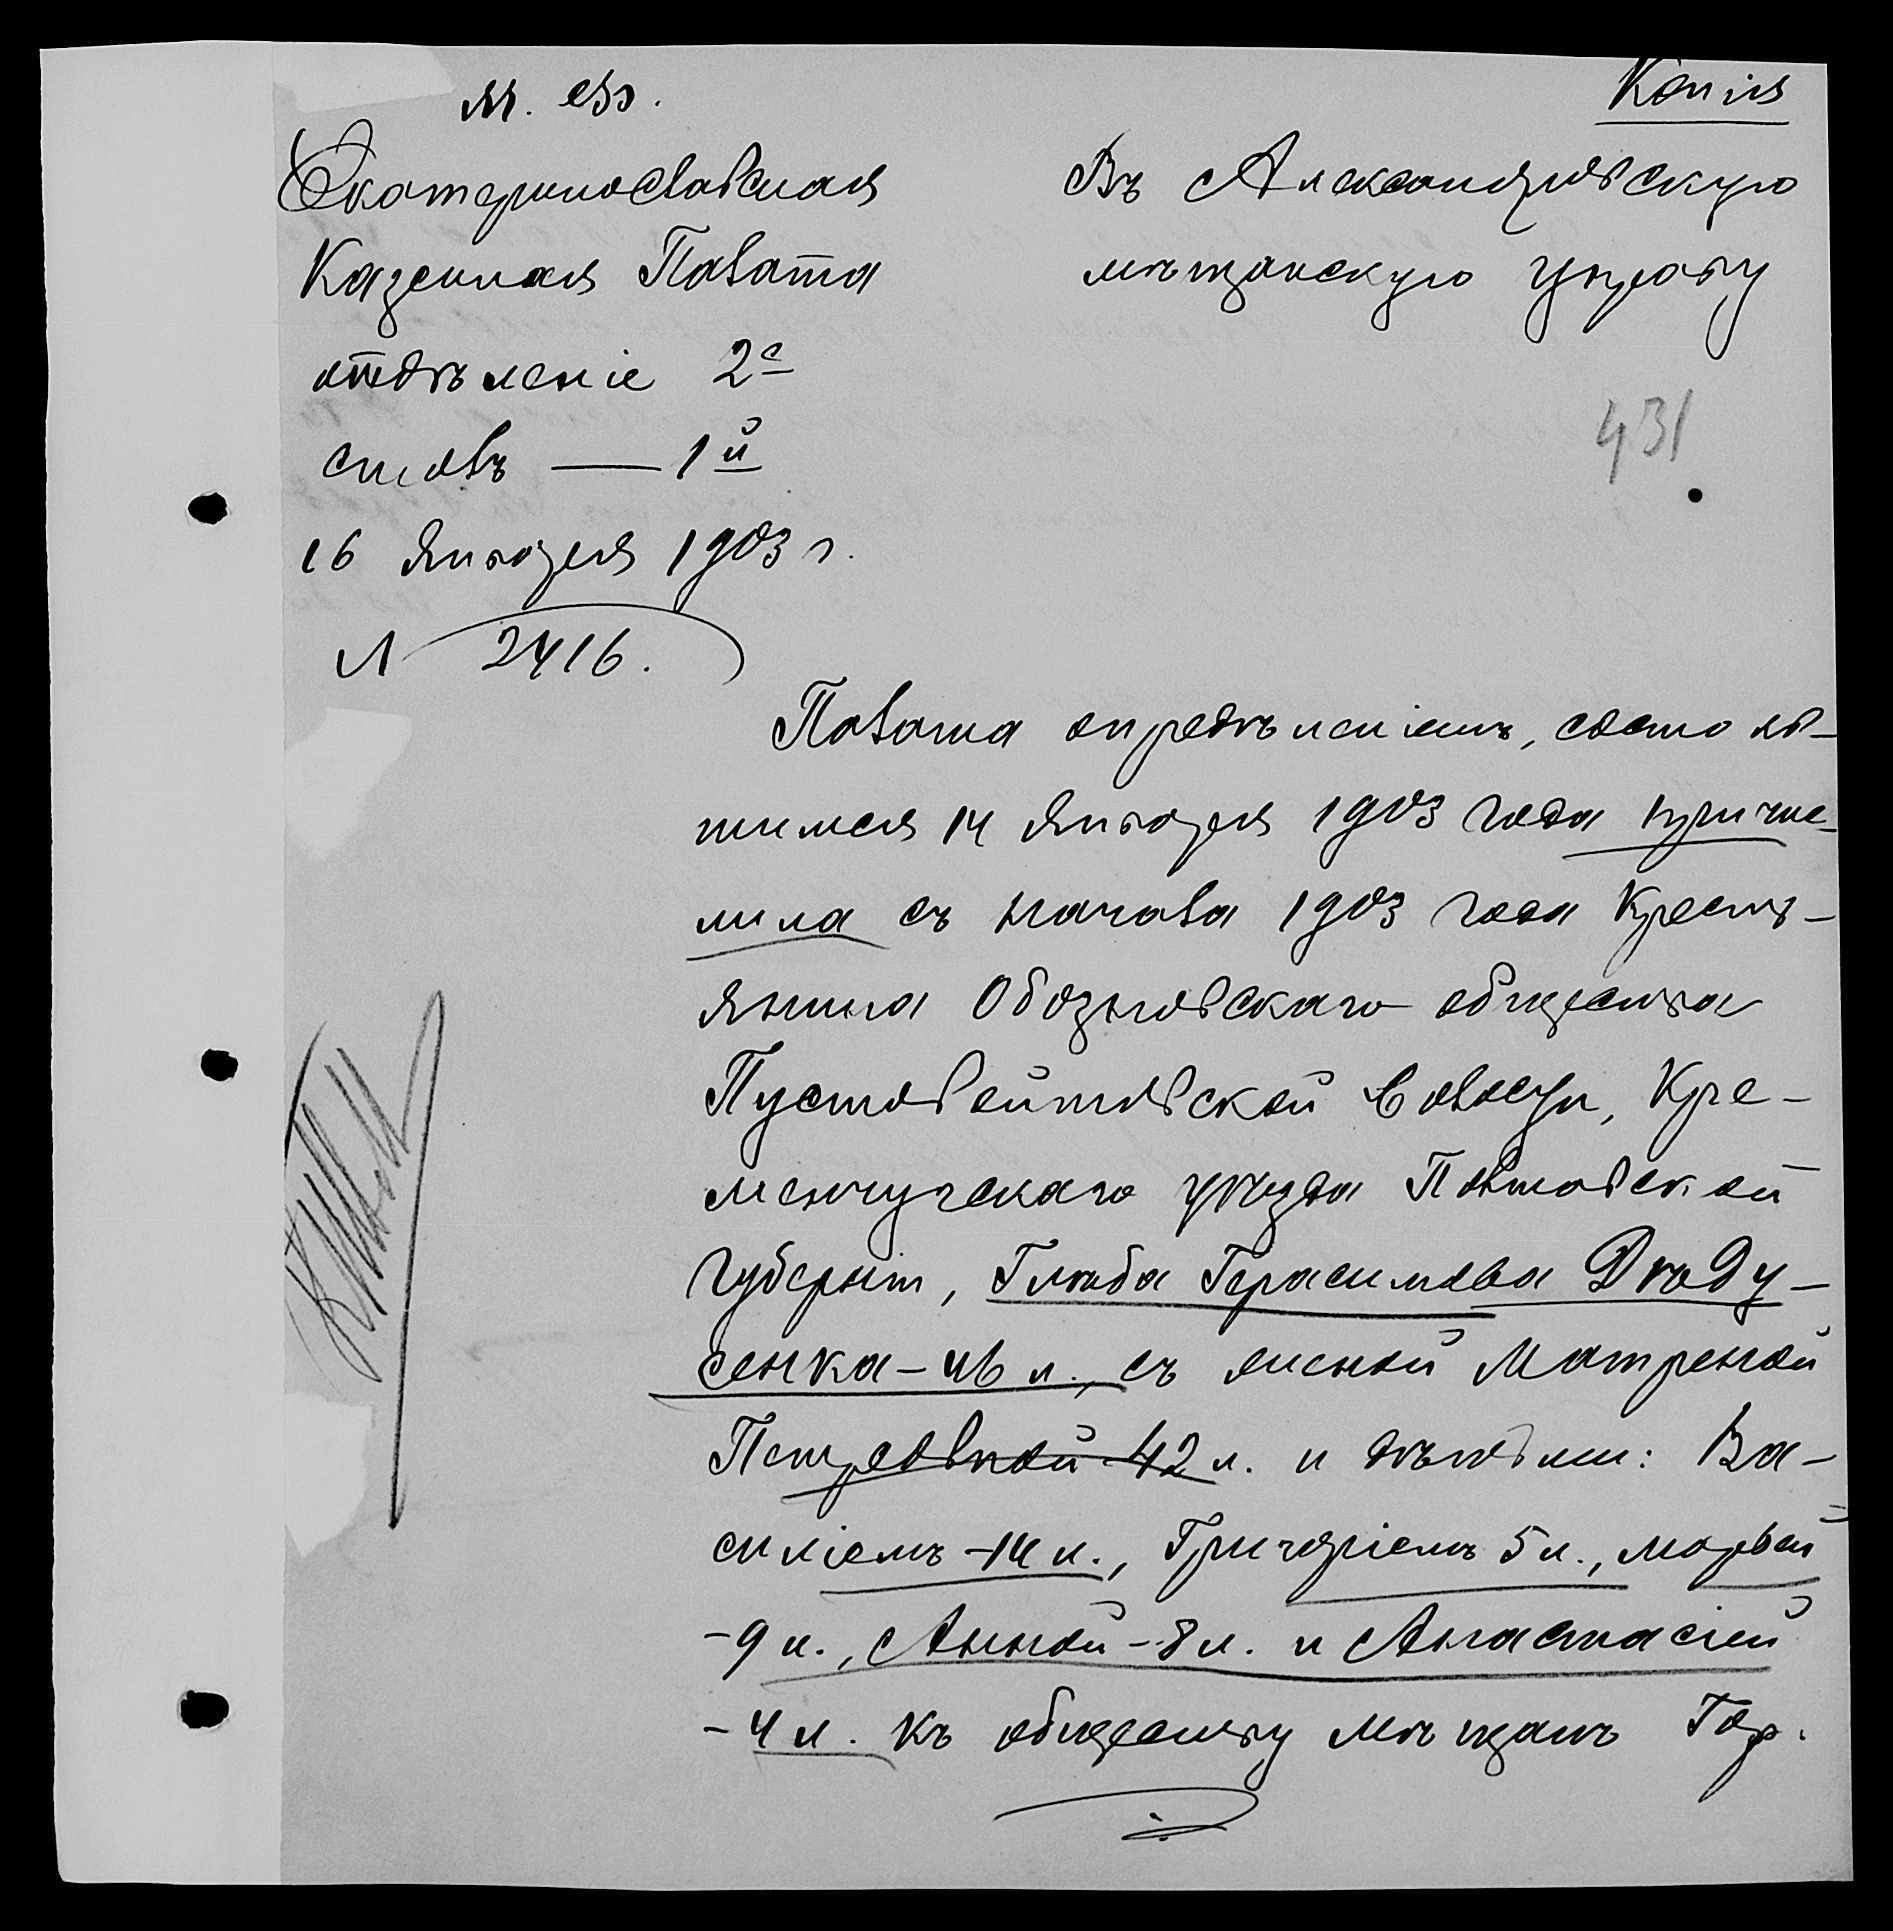 М. Ф.
Копія
Екатеринославская
Казенная Палата
отдѣленіе 2е
столъ — 1й
16 Января 1903 г.
№ 2416.
Въ Александровскую
мѣщанскую управу
431
Палата опредѣленіемъ, состояв-
шимся 14 Января 1903 года причис-
лила съ начала 1903 года Кресть-
янина Обозновскаго общества
Пустовойтовской волости, Кре-
менчугскаго уѣзда Полтавской
Губерніи, Глѣба Герасимова Дѣду-
сенка - 46 л., съ женой Матреной
Петровной 42 л. и дѣтьми: Ва-
силіемъ - 14 л., Григоріемъ 5 л., Марьей
- 9 л., Анной - 8 л. и Анастасіей
- 4 л. къ обществу мѣщанъ Гор.